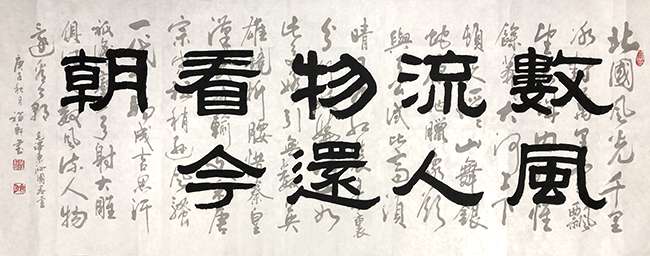 數風
流人
物還
看今
朝
北國風光千里
冰封里飄
望內外惟
餘莽大河上下
頓失山舞銀
蛇馳蠟象欲
與天公試比高須
晴紅裹
分外如
此多嬌引無數英
雄競折腰惜秦皇
漢武輸唐
宗宋祖稍遜風騷
一代成吉思汗
祇識弓射大雕
俱數風流人物
還看今朝
庚子秋月
毛澤東沁園春雪